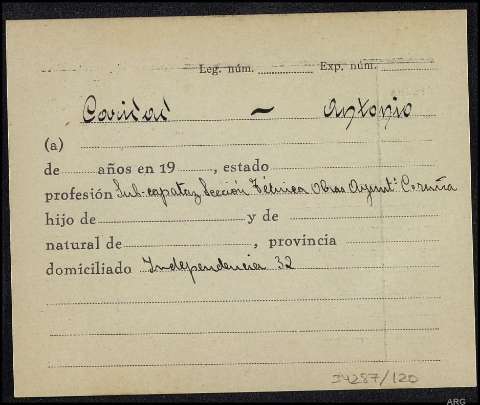 Leg. núm. Exp. núm.
Caridad — Antonio
(a)
de años en 19, estado
profesión Sub-capataz Sección Técnica Obras Ayunt.º Coruña
hijo de y de
natural de, provincia
domiciliado Independencia 32
34287/120
ARG